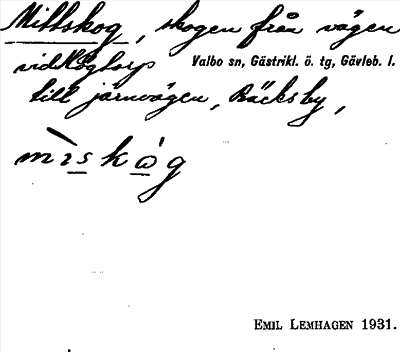 Mittskog, skogen från vägen
vid Högtorp Valbo sn, Gästrikl. ö. tg, Gävleb. l.
till järnvägen, Bäcksby,
mìskåg
EMIL LEMHAGEN 1931.